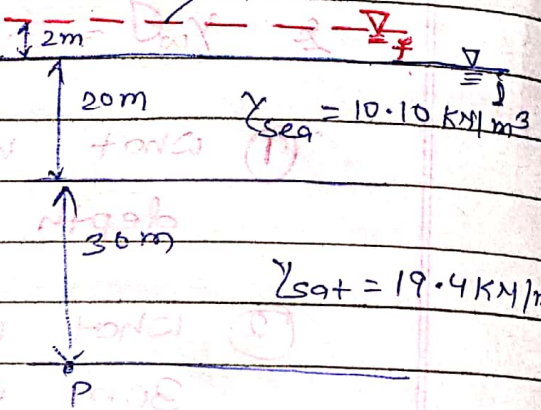 2m
f
i
20m
γsea = 10.10 KN/m³
30m
γsat = 19.4 KN/
P